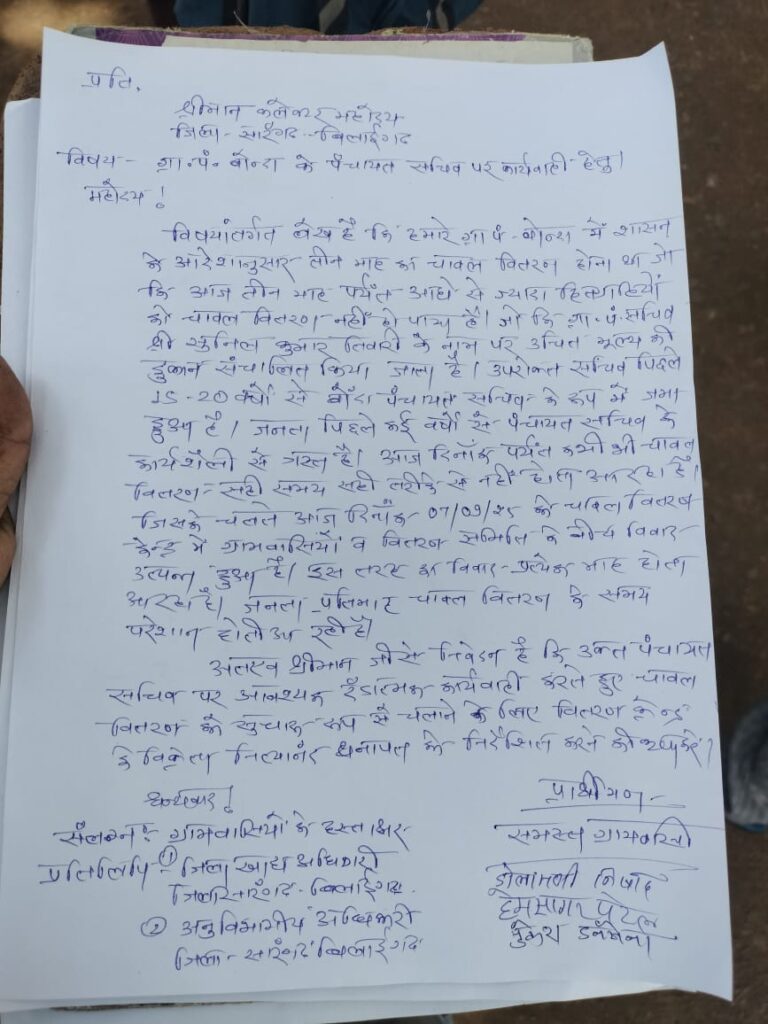 प्रति,
श्रीमान कलेक्टर महोदय
जिला - सारंगढ़ - बिलाईगढ़
विषय - ग्रा.पं. बोन्दा के पंचायत सचिव पर कार्यवाही हेतु।
महोदय!
विषयांतर्गत लेख है कि हमारे ग्रा.पं. बोन्दा में शासन
के आदेशानुसार तीन माह का चावल वितरण होना था जो
कि आज तीन माह पर्यंत आधे से ज्यादा हितग्राहियों
को चावल वितरण नहीं हो पाया है। जो कि ग्रा.पं. सचिव
श्री सुनिल कुमार तिवारी के नाम पर उचित मूल्य की
दुकान संचालित किया जाता है। उपरोक्त सचिव पिछले
15-20 वर्षों से बोंदा पंचायत सचिव के रूप में जमा
हुआ है। जनता पिछले कई वर्षों से पंचायत सचिव के
कार्यशैली से त्रस्त है। आज दिनाँक पर्यंत कभी भी चावल
वितरण - सही समय सही तरीके से नहीं होता आ रहा है।
जिसके चलते आज दिनाँक 07/09/25 को चावल वितरण
केन्द्र में ग्रामवासियों व वितरण समिति के बीच विवाद
उत्पन्न हुआ है। इस तरह का विवाद प्रत्येक माह होता
आ रहा है। जनता प्रतिमाह चावल वितरण के समय
परेशान होती आ रही है।
अतएव श्रीमान जी से निवेदन है कि उक्त पंचायत
सचिव पर आवश्यक दंडात्मक कार्यवाही करते हुए चावल
वितरण को सुचारू रूप से चलाने के लिए वितरण केन्द्र
के विक्रेता नित्यानंद को निर्देशित करने की कृपा करें।
धन्यवाद!
प्रार्थीगण -
संलग्न :- ग्रामवासियों के हस्ताक्षर
समस्त ग्रामवासी
प्रतिलिपि - ① जिला खाद्य अधिकारी
जिला सारंगढ़ - बिलाईगढ़
② अनुविभागीय अधिकारी
जिला - सारंगढ़ बिलाईगढ़
डोलामणी निषाद
हेमसागर पटेल
मुकेश डनसेना